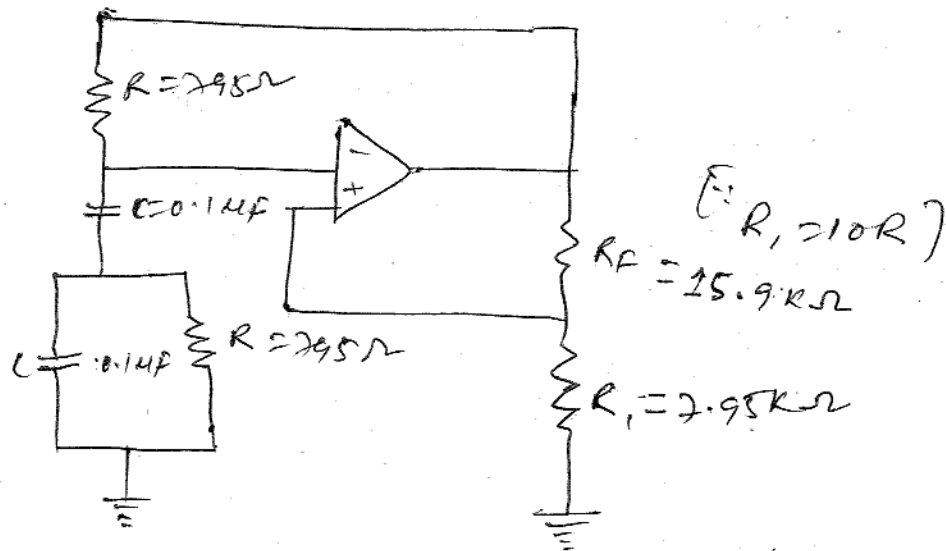 R = 795Ω
-
+
C=0.1μF
[∵ R₁ = 10R]
RF = 15.9KΩ
C 0.1μF
R = 795Ω
R₁ = 7.95KΩ